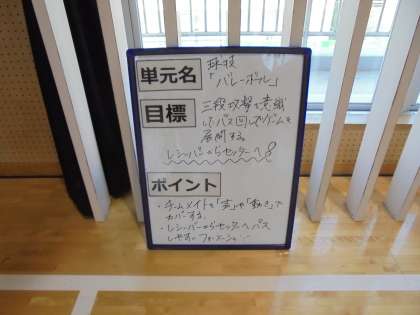 単元名 球技
「バレーボール」
目標 三段攻撃を意識
してパス回しでゲームを
展開する。
レシーバーからセッターへ!
ポイント
・チームメイトを「声」や「動き」で
カバーする。
・レシーバーからセッターへパス
しやすいフォーメーション